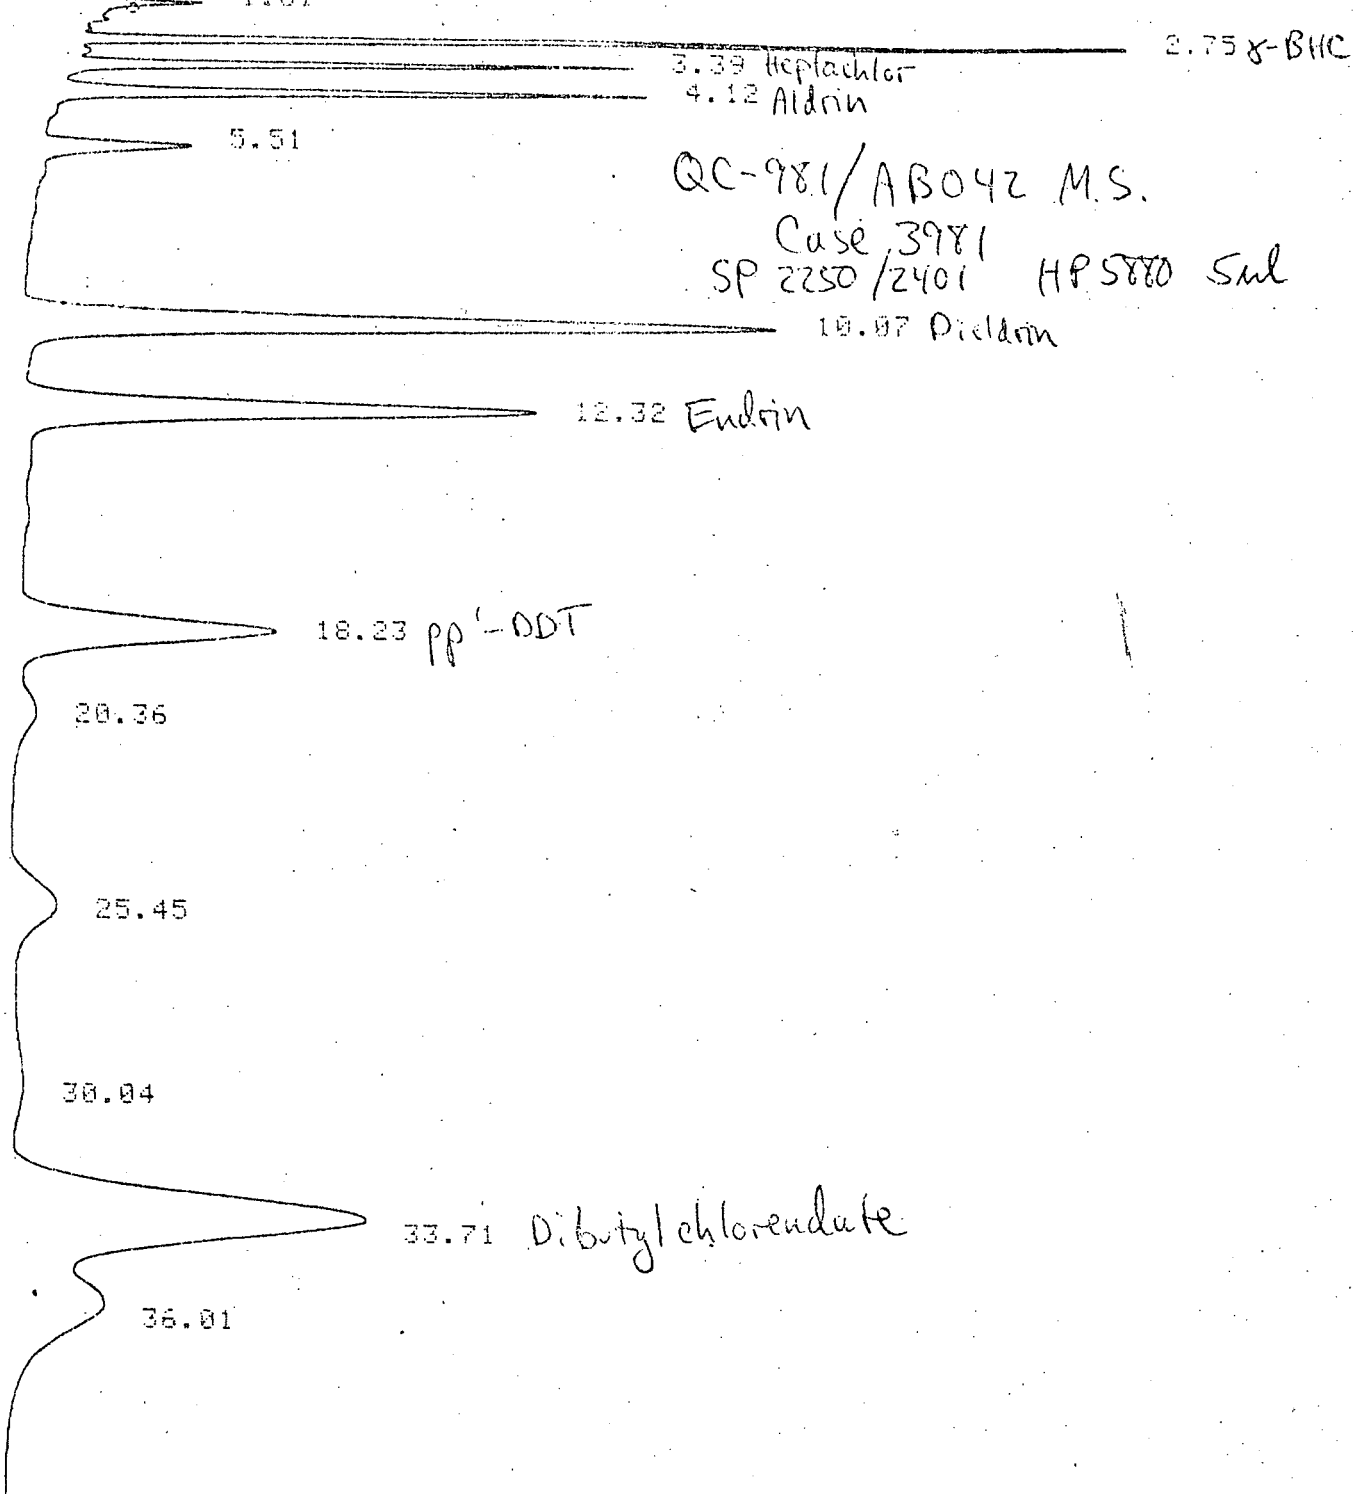 2.75 γ-BHC
3.39 Heptachlor
4.12 Aldrin
5.51
QC-981/AB042 M.S.
Case 3981
SP 2250/2401 HP5880 5ul
10.07 Dieldrin
12.32 Endrin
18.23 pp'-DDT
20.36
25.45
30.04
33.71 Dibutylchlorendate
36.01